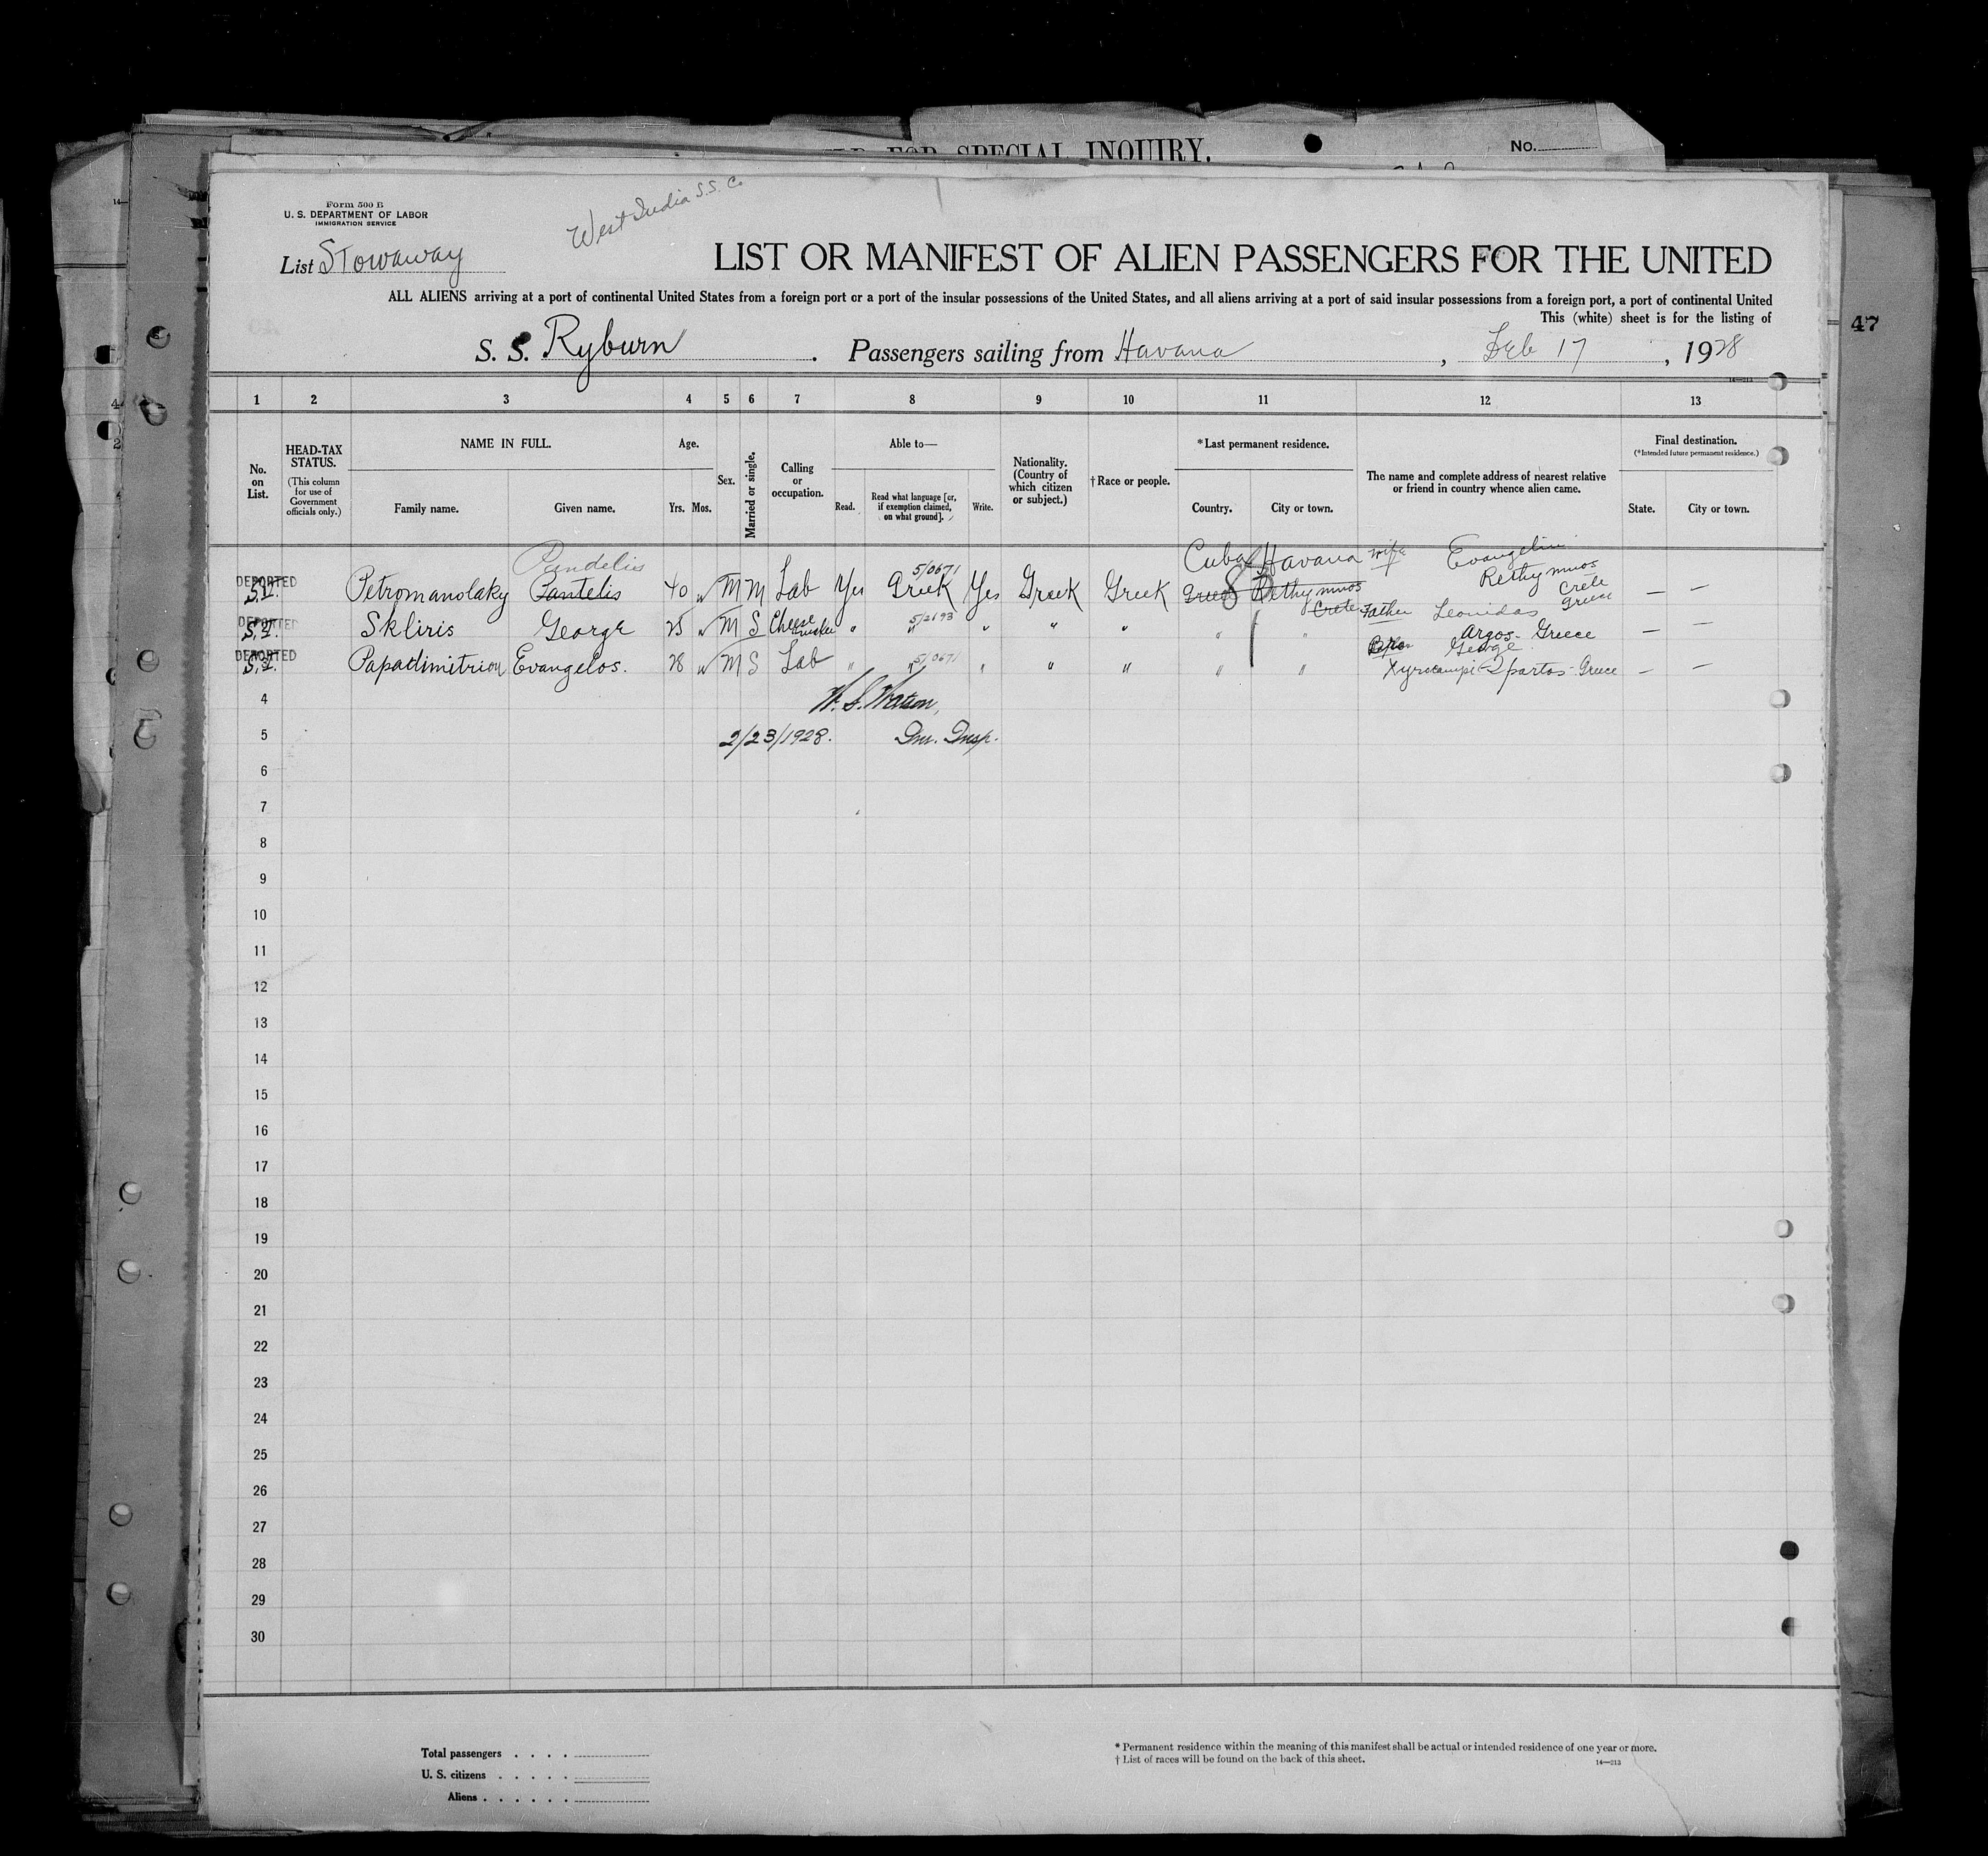 FOR SPECIAL INQUIRY.
No.
Form 500 B
U. S. DEPARTMENT OF LABOR
IMMIGRATION SERVICE
West India S.S. Co
List Stowaway
LIST OR MANIFEST OF ALIEN PASSENGERS FOR THE UNITED
ALL ALIENS arriving at a port of continental United States from a foreign port or a port of the insular possessions of the United States, and all aliens arriving at a port of said insular possessions from a foreign port, a port of continental United
This (white) sheet is for the listing of
47
S. S. Ryburn . Passengers sailing from Havana , Feb 17 , 1928
14—213
1 2 3 4 5 6 7 8 9 10 11 12 13
No. on List.
HEAD-TAX STATUS.
(This column for use of Government officials only.)
NAME IN FULL.
Family name. Given name.
Age.
Yrs. Mos.
Sex.
Married or single.
Calling or occupation.
Able to—
Read.
Read what language [or, if exemption claimed, on what ground].
Write.
Nationality. (Country of which citizen or subject.)
† Race or people.
*Last permanent residence.
Country. City or town.
The name and complete address of nearest relative or friend in country whence alien came.
Final destination.
(*Intended future permanent residence.)
State. City or town.
Pendelis 5/0671 Cuba Havana wife Evangelin
DEPORTED Petromanolaky Pantelis 40 M M Lab Yes Greek Yes Greek Greek Greece Rethymnos Crete Rethymnos Crete Greece — —
DEPORTED Skliris George 25 M S Cheese maker " 5/2693 " " " " " " Father Leonidas Argos - Greece — —
DEPORTED Papadimitriou Evangelos. 28 M S Lab " " 5/0671 " " " " " George Xyrocampi Spartos - Greece — —
4 W. S. Watson,
5 2/23/1928. Im. Insp.
6
7
8
9
10
11
12
13
14
15
16
17
18
19
20
21
22
23
24
25
26
27
28
29
30
Total passengers . . . .
U. S. citizens . . . . .
Aliens . . . . . .
* Permanent residence within the meaning of this manifest shall be actual or intended residence of one year or more.
† List of races will be found on the back of this sheet.
14—213